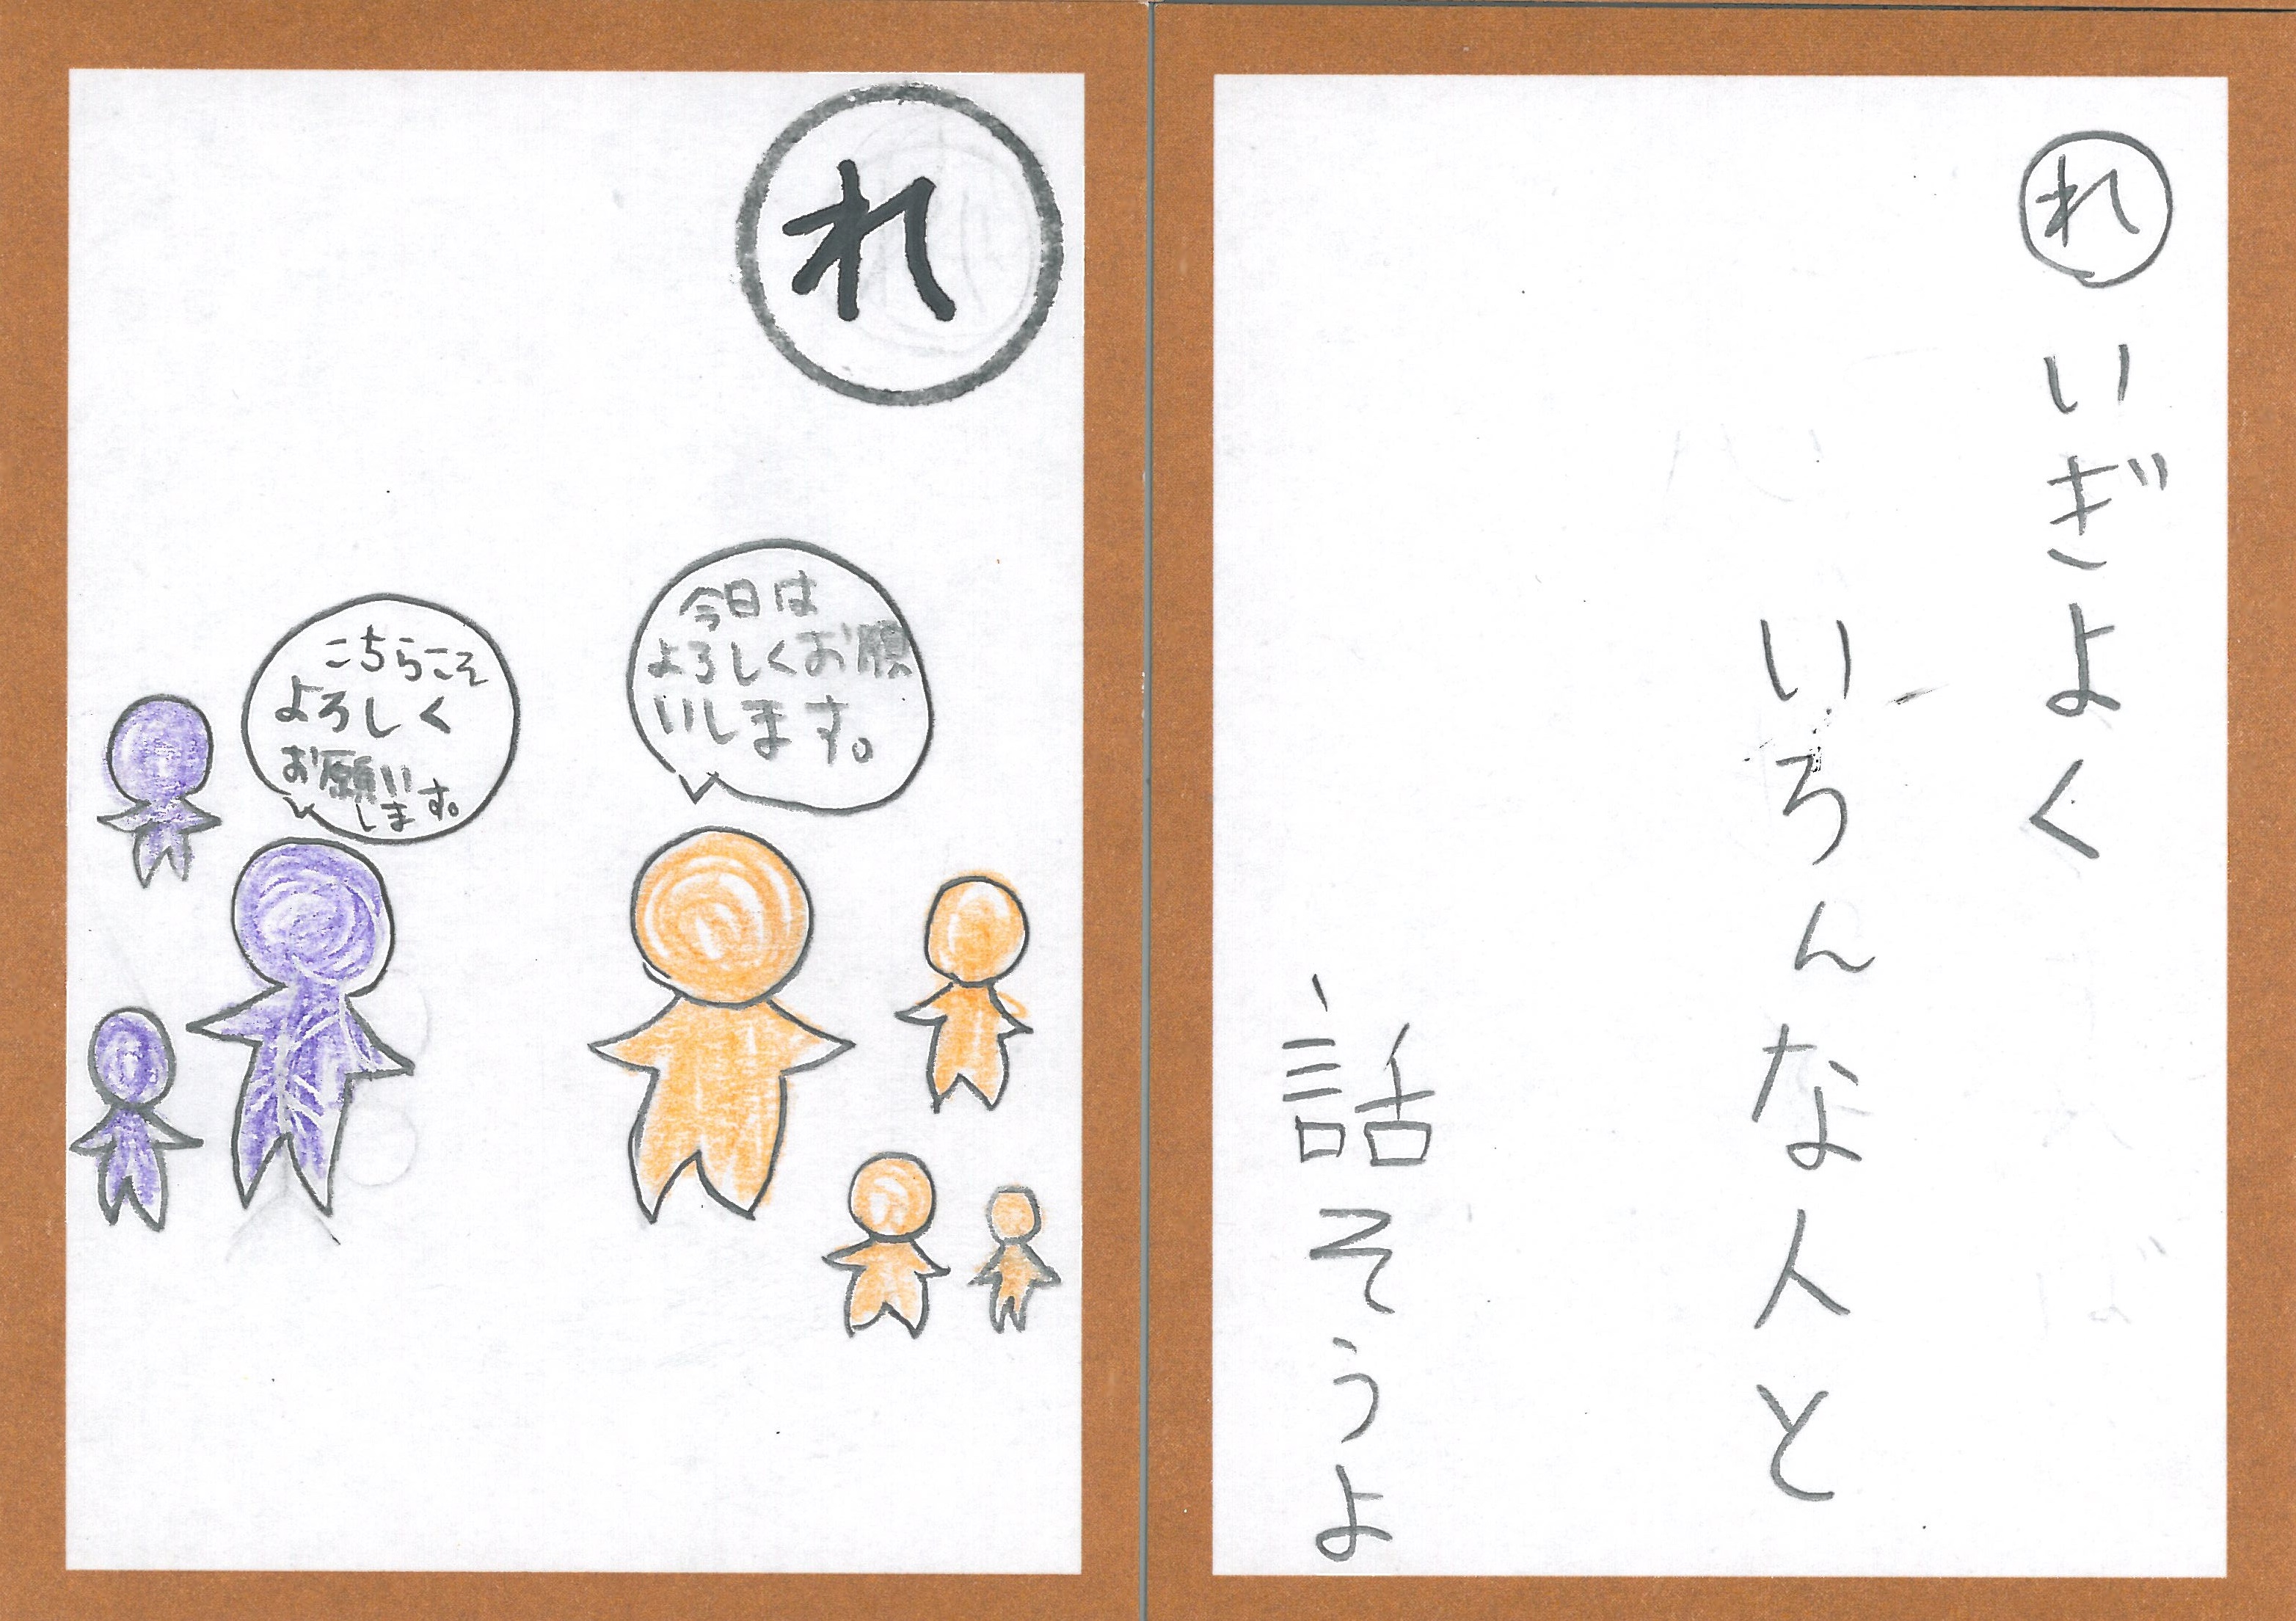 れいぎよく
いろんな人と
話そうよ
れ
今日は
よろしくお願
いします。
こちらこそ
よろしく
お願い
します。